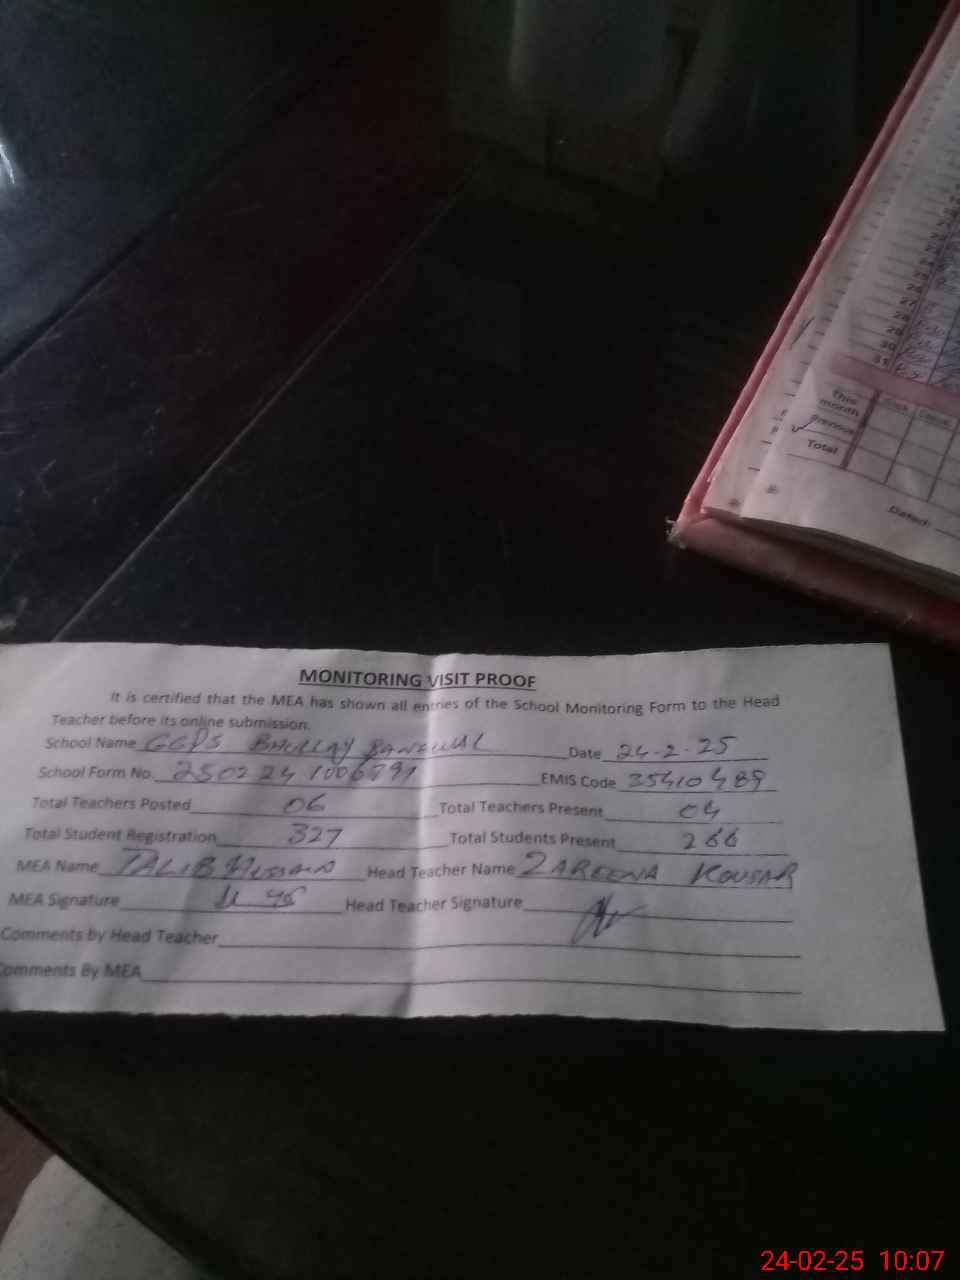 21
22
23
24
25
26
27
28
29
30
31 P.S
This month
Previous
Total
Sick Casual
Dated:
MONITORING VISIT PROOF
It is certified that the MEA has shown all entries of the School Monitoring Form to the Head
Teacher before its online submission.
School Name GGPS BHULLAY Date 24-2-25
School Form No. EMIS Code 35410489
Total Teachers Posted 06 Total Teachers Present 04
Total Student Registration 327 Total Students Present 266
MEA Name TALIB HUSSAIN Head Teacher Name ZAREENA KOUSAR
MEA Signature Head Teacher Signature
Comments by Head Teacher
Comments By MEA
24-02-25 10:07